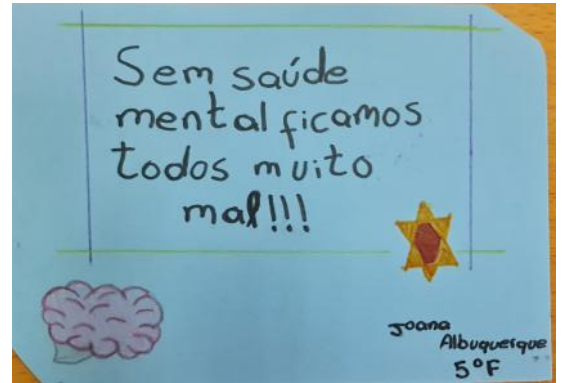 Sem saúde
mental ficamos
todos muito
mal!!!
Joana
Albuquerque
5ºF